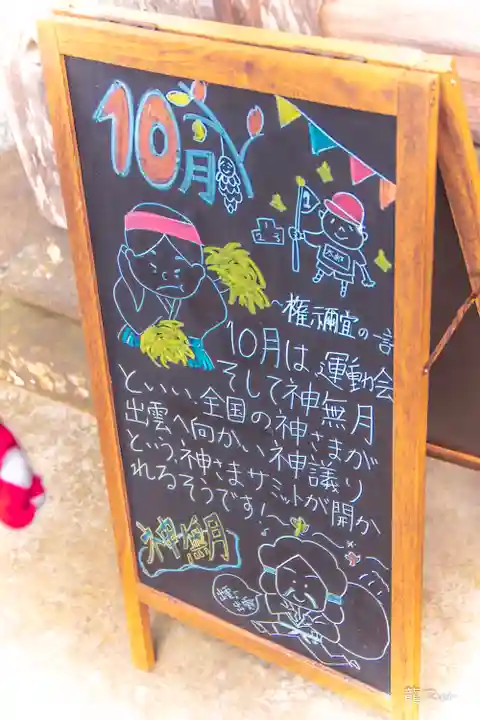 10月
1
2
3
〜権禰宜の言
10月は、運動会
そして神無月
といい、全国の神さまが
出雲へ向かい神議り
という、神さまサミットが開か
れるそうです!〜
神無月
龍